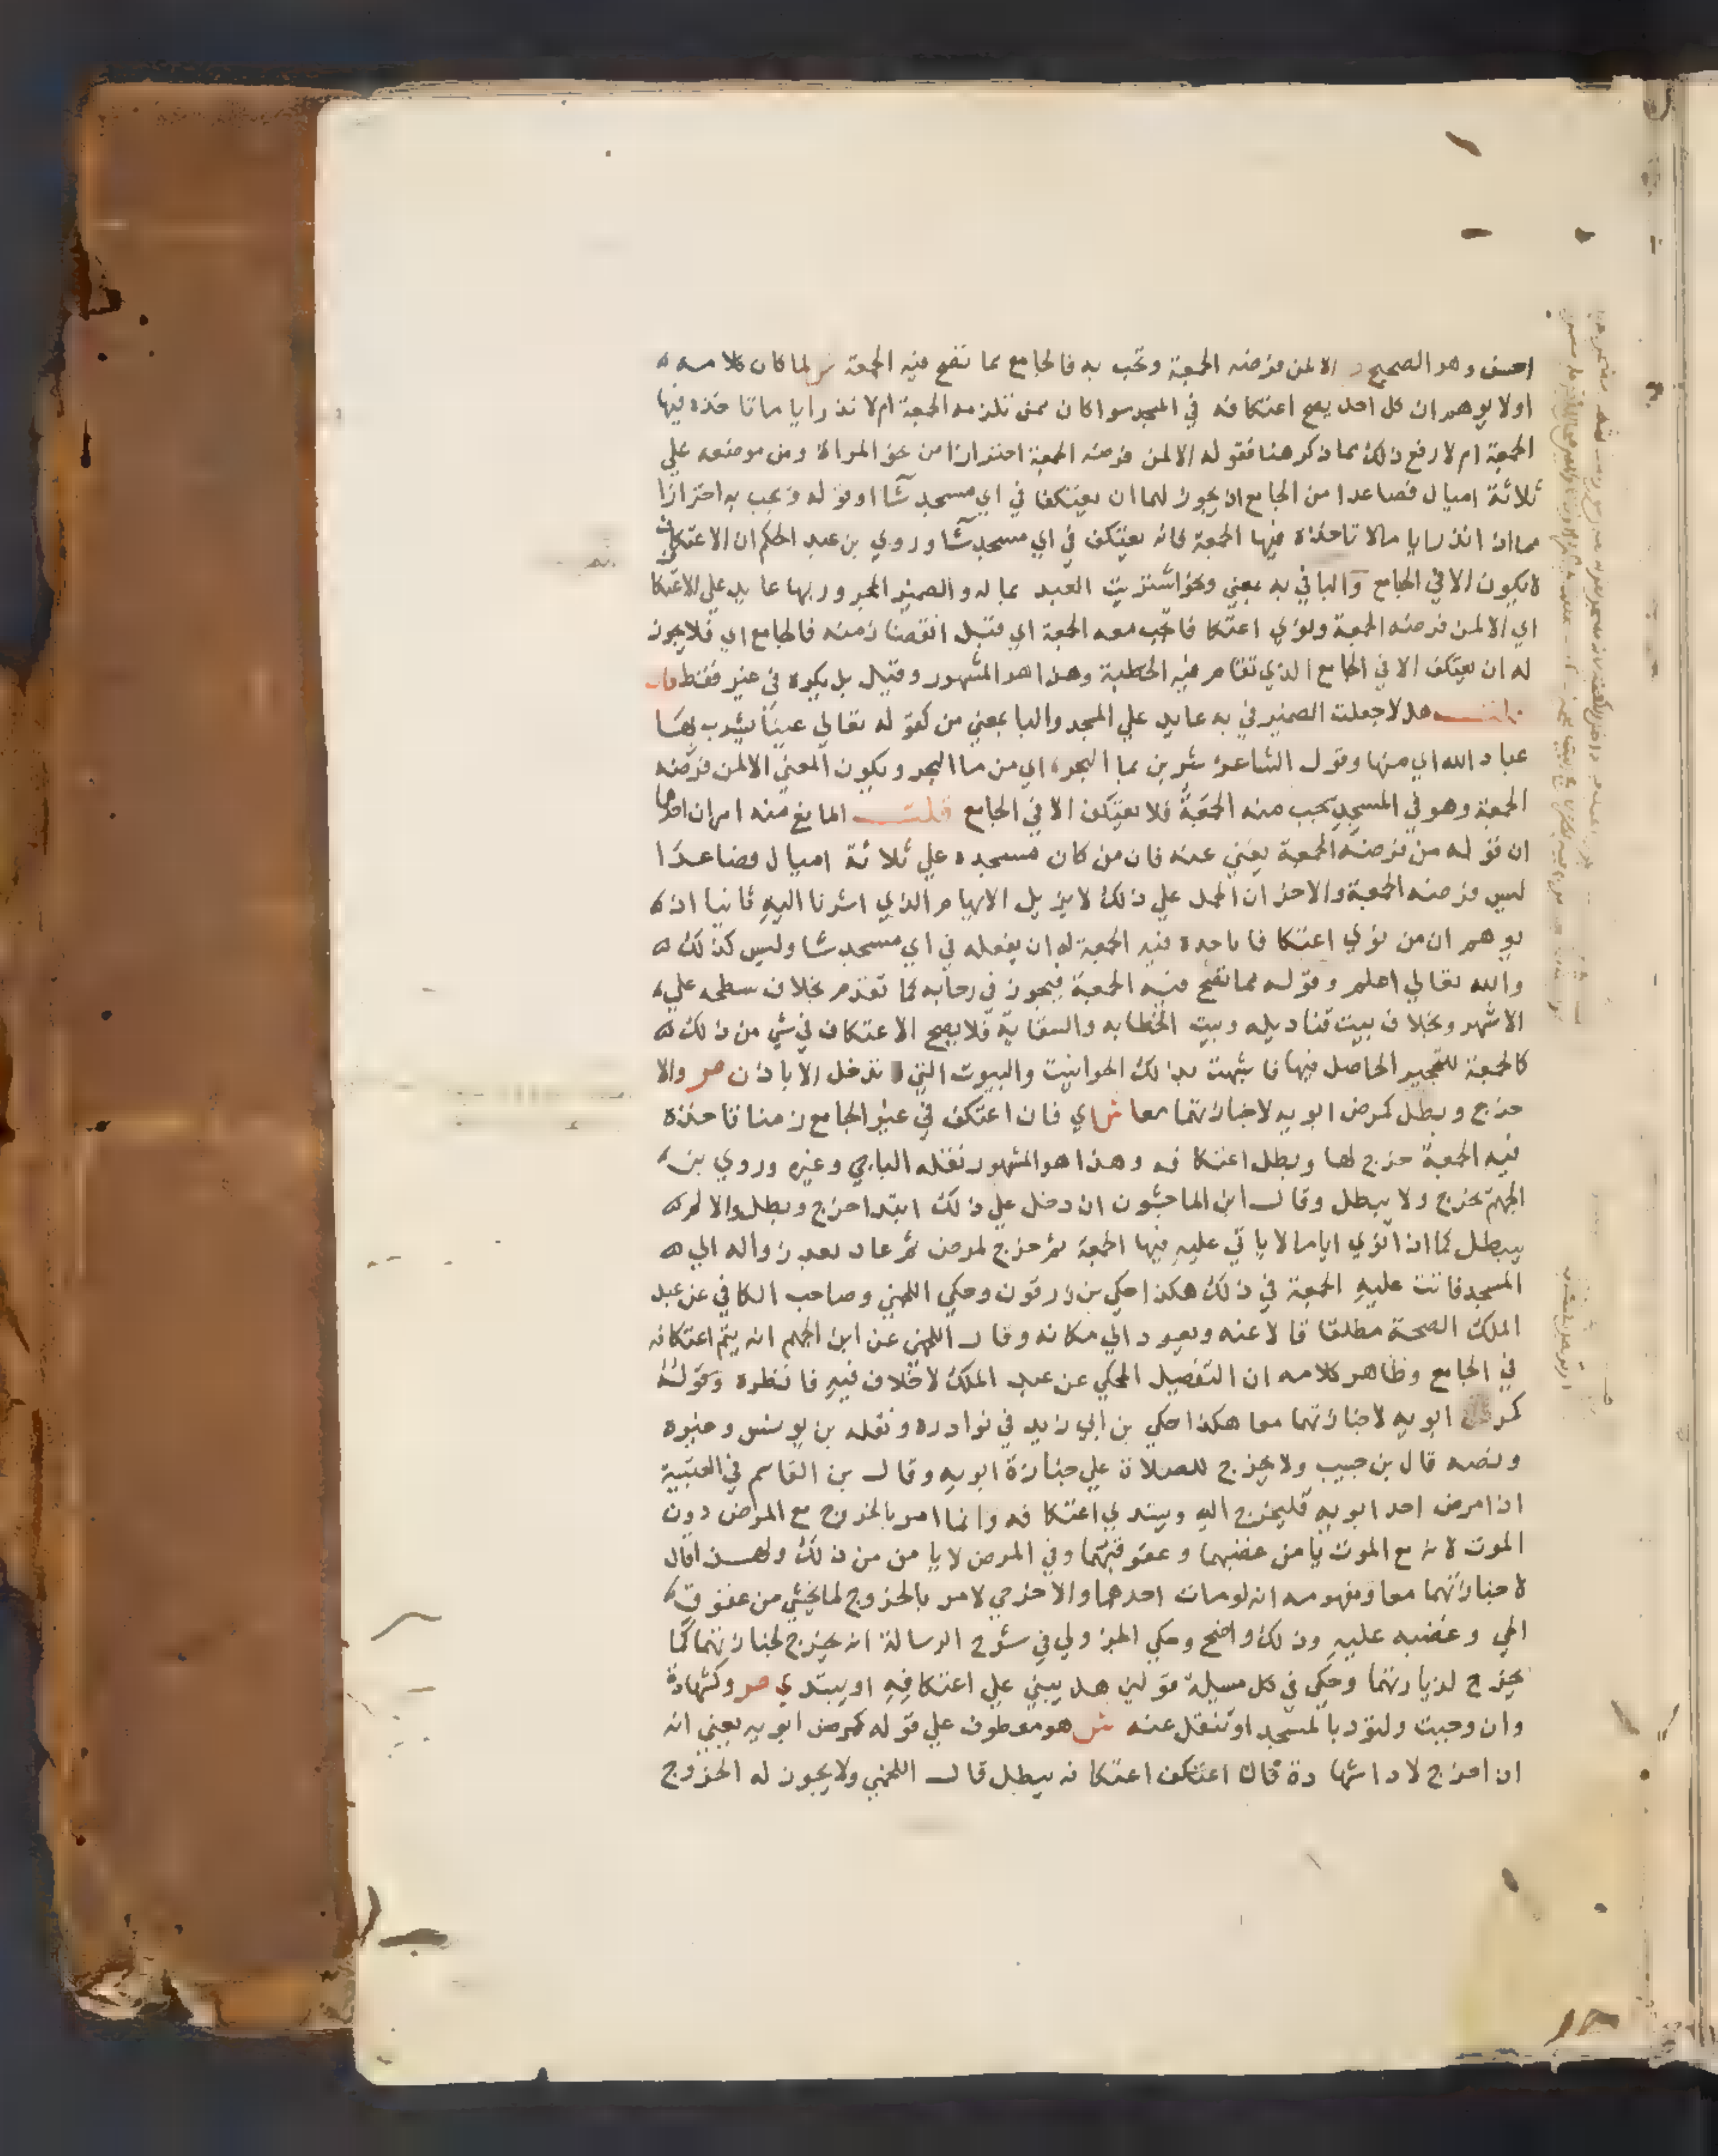 احسن وهو الصحيح ص الا لمن فرضه الجمعة وتجب به فالجامع مما تصح فيه الجمعة ش لما كان كلامه
اولا يوهم ان كل احد يصح اعتكافه في المسجد سوا كان ممن تلزمه الجمعة ام لا نذر اياما تاخذه فيها
الجمعة ام لا رفع ذلك بما ذكر هنا فقوله الا لمن فرضه الجمعة احترازا من نحو المراة ومن موضعه علي
ثلاثة اميال فصاعدا من الجامع اذ يجوز لهما ان يعتكفا في اي مسجد شآا وقوله وتجب به احترازا
مما اذا نذر اياما لا تاخذه فيها الجمعة فانه يعتكف في اي مسجد شآ وروي بن عبد الحكم ان الاعتكاف
لا يكون الا في الجامع والبا في به بمعني في نحو اشتريت العبد بماله والضمير المجرور بها عايد علي الاعتكا
اي الا لمن فرضه الجمعة ونوي اعتكافا تجب معه الجمعة اي قبل انقضا زمنه فالجامع اي فلا يجوز
له ان يعتكف الا في الجامع الذي تقام فيه الخطبة وهذا هو المشهور وقيل بل يكره في غيره فقط فان
قلت هلا جعلت الضمير في به عايد علي المسجد والبا بمعني من كقوله تعالي عينا يشرب بها
عباد الله اي منها وقول الشاعر شربن بما البحر اي من ما البحر ويكون المعني الا لمن فرضه
الجمعة وهو في المسجد تجب منه الجمعة فلا يعتكف الا في الجامع قلت المانع منه امران احدهما
ان قوله من فرضه الجمعة يغني عنه فان من كان مسجده علي ثلاثة اميال فصاعدا
ليس فرضه الجمعة والاخر ان الحمل علي ذلك لا يزيل الايهام الذي اشرنا اليه ثانيا اذ
يوهم ان من نوي اعتكافا تاخذه فيه الجمعة له ان يفعله في اي مسجد شا وليس كذلك
والله تعالي اعلم وقوله مما تصح فيه الجمعة فيجوز في رحابه كما تقدم بخلاف سطحه علي
الاشهر وبخلاف بيت قناديله وبيت الخطابه والسقاية فلا يصح الاعتكاف في شي من ذلك
كالجمعة للتحجير الحاصل فيها فاشبهت بذلك الحوانيت والبيوت التي لا تدخل الا باذن ص والا
خرج وبطل كمرض ابويه لا جنازتهما معا ش اي فان اعتكف في غير الجامع زمنا تاخذه
فيه الجمعة خرج لها وبطل اعتكافه وهذا هو المشهور نقله الباجي وغيره وروي بن
الجهم يخرج ولا يبطل وقال ابن الماجشون ان دخل علي ذلك ابتدا خرج وبطل والا لم
يبطل كما اذا نوي اياما لا ياتي عليه فيها الجمعة ثم خرج لمرض ثم عاد بعد زواله الي
المسجد فاتت عليه الجمعة في ذلك هكذا حكي بن زرقون وحكي اللخمي وصاحب الكافي عن عبد
الملك الصحة مطلقا قالا عنه ويعود الي مكانه وقال اللخمي عن ابن الجهم انه يتم اعتكافه
في الجامع وظاهر كلامه ان التفصيل المحكي عن عبد الملك لا خلاف فيه فانظره وقوله
كمرض ابويه لا جنازتهما معا هكذا حكي بن ابي زيد في نوادره ونقله بن يونس وغيره
ونصه قال بن حبيب ولا يخرج للصلاة علي جنازة ابويه وقال بن القاسم في العتبية
اذا مرض احد ابويه فليخرج اليه ويبتدي اعتكافه وانما امر بالخروج مع المرض دون
الموت لانه مع الموت يامن غضبهما وعقوقهما وفي المرض لا يامن من ذلك ولهذا قال
لا جنازتهما معا ومفهومه انه لو مات احدهما والاخر حي لامر بالخروج لما يخشي من عقوق
الحي وغضبه عليه وذلك واضح وحكي الجزولي في شرح الرسالة انه يخرج لجنازتهما كما
يخرج لزيارتهما وحكي في كل مسيلة قولين هل يبني علي اعتكافه او يبتدي ص وكشهادة
وان وجبت ولتؤد بالمسجد او تنقل عنه ش هو معطوف علي قوله كمرض ابويه يعني انه
اذا خرج لادا شهادة فان اعتكافه يبطل قال اللخمي ولا يجوز له الخروج